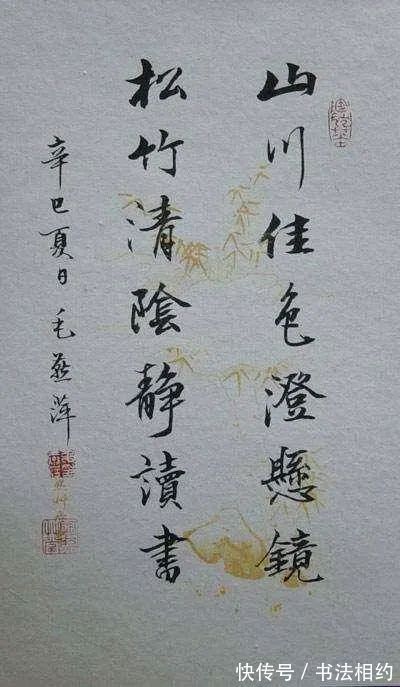 山川佳色澄懸鏡
松竹清陰靜讀書
辛巳夏日毛燕萍
快传号/书法相约